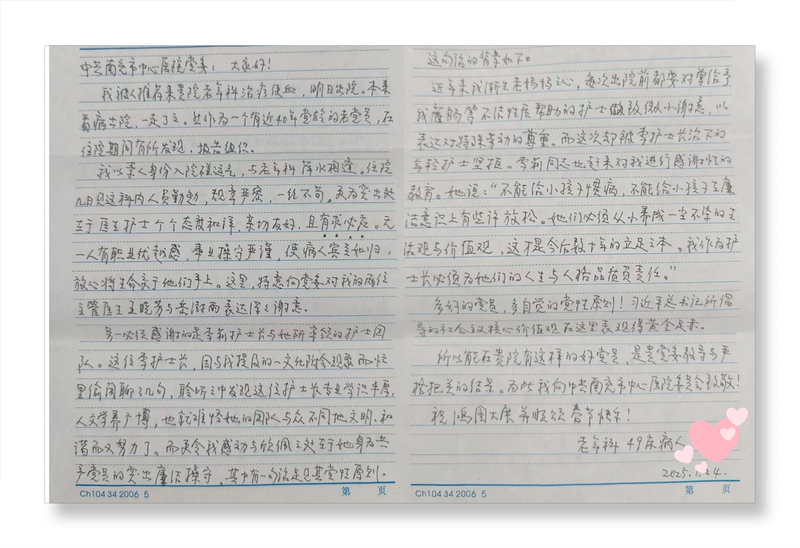 中共南充市中心医院党委：大家好！
我被人推荐来贵院老年科治疗便血，明日出院。本来
看病出院，一走了之。然作为一个有近40年党龄的老党员，在
住院期间有所发现，报告组织。
我以素人身份入院确这么，与老年科萍水相逢。住院
几日见这科内人员勤勉，规章严密，一丝不苟。更为突出处
在于医生护士个个态度和详，亲切友好，且有求必应。无
一人有职业优越感，事业操守严谨，使病人宾至如归，
放心将生命交于他们手上。这里，特意向党委对我的两位
主管医生王晓芳与岳尉而表达深深谢意。
另一必须感谢的是李莉护士长与她所率领的护士团
队。这位李护士长，因与我提及的一文化附会现象而忙
里偷闲聊了几句，聆听之中发现这位护士长专业学识丰厚，
人文学养广博，也就难怪她的团队与众不同地文明、和
谐而又努力了。而更令我感动与钦佩之处在于她身为共
产党员的突出廉洁操守，其中有一句话足见其党性原则。
这句话的背景如下。
近年来我渐生老杨杨之心，每次出院前都要对曾给予
我灌肠等不洁性质帮助的护士做致微小谢意，以
表达对特殊劳动的尊重。而这次却被李护士长治下的
年轻护士坚拒。李莉同志也赶来对我进行感谢性的
教育。她说："不能给小孩子惯病，不能给小孩子在廉
洁意识上有些许放松。她们必须从小养成一尘不染的生
活观与价值观，这才是今后数十年的立足之本。我作为护
士长必须为她们的人生与人格品质负责任。"
多好的党员，多自觉的党性原则！习近平总书记所倡
导的社会主义核心价值观在这里表现得黄金足赤。
所以能在贵院有这样的好党员，是贵党委教导与严
格把关的结果。为此我向中共南充市中心医院委员会致敬！
祝鸿图大展并顺颂春节快乐！
老年科 49床病人
2025.1.24.
Ch104 34 2006 5 第 页
Ch104 34 2006 5 第 页